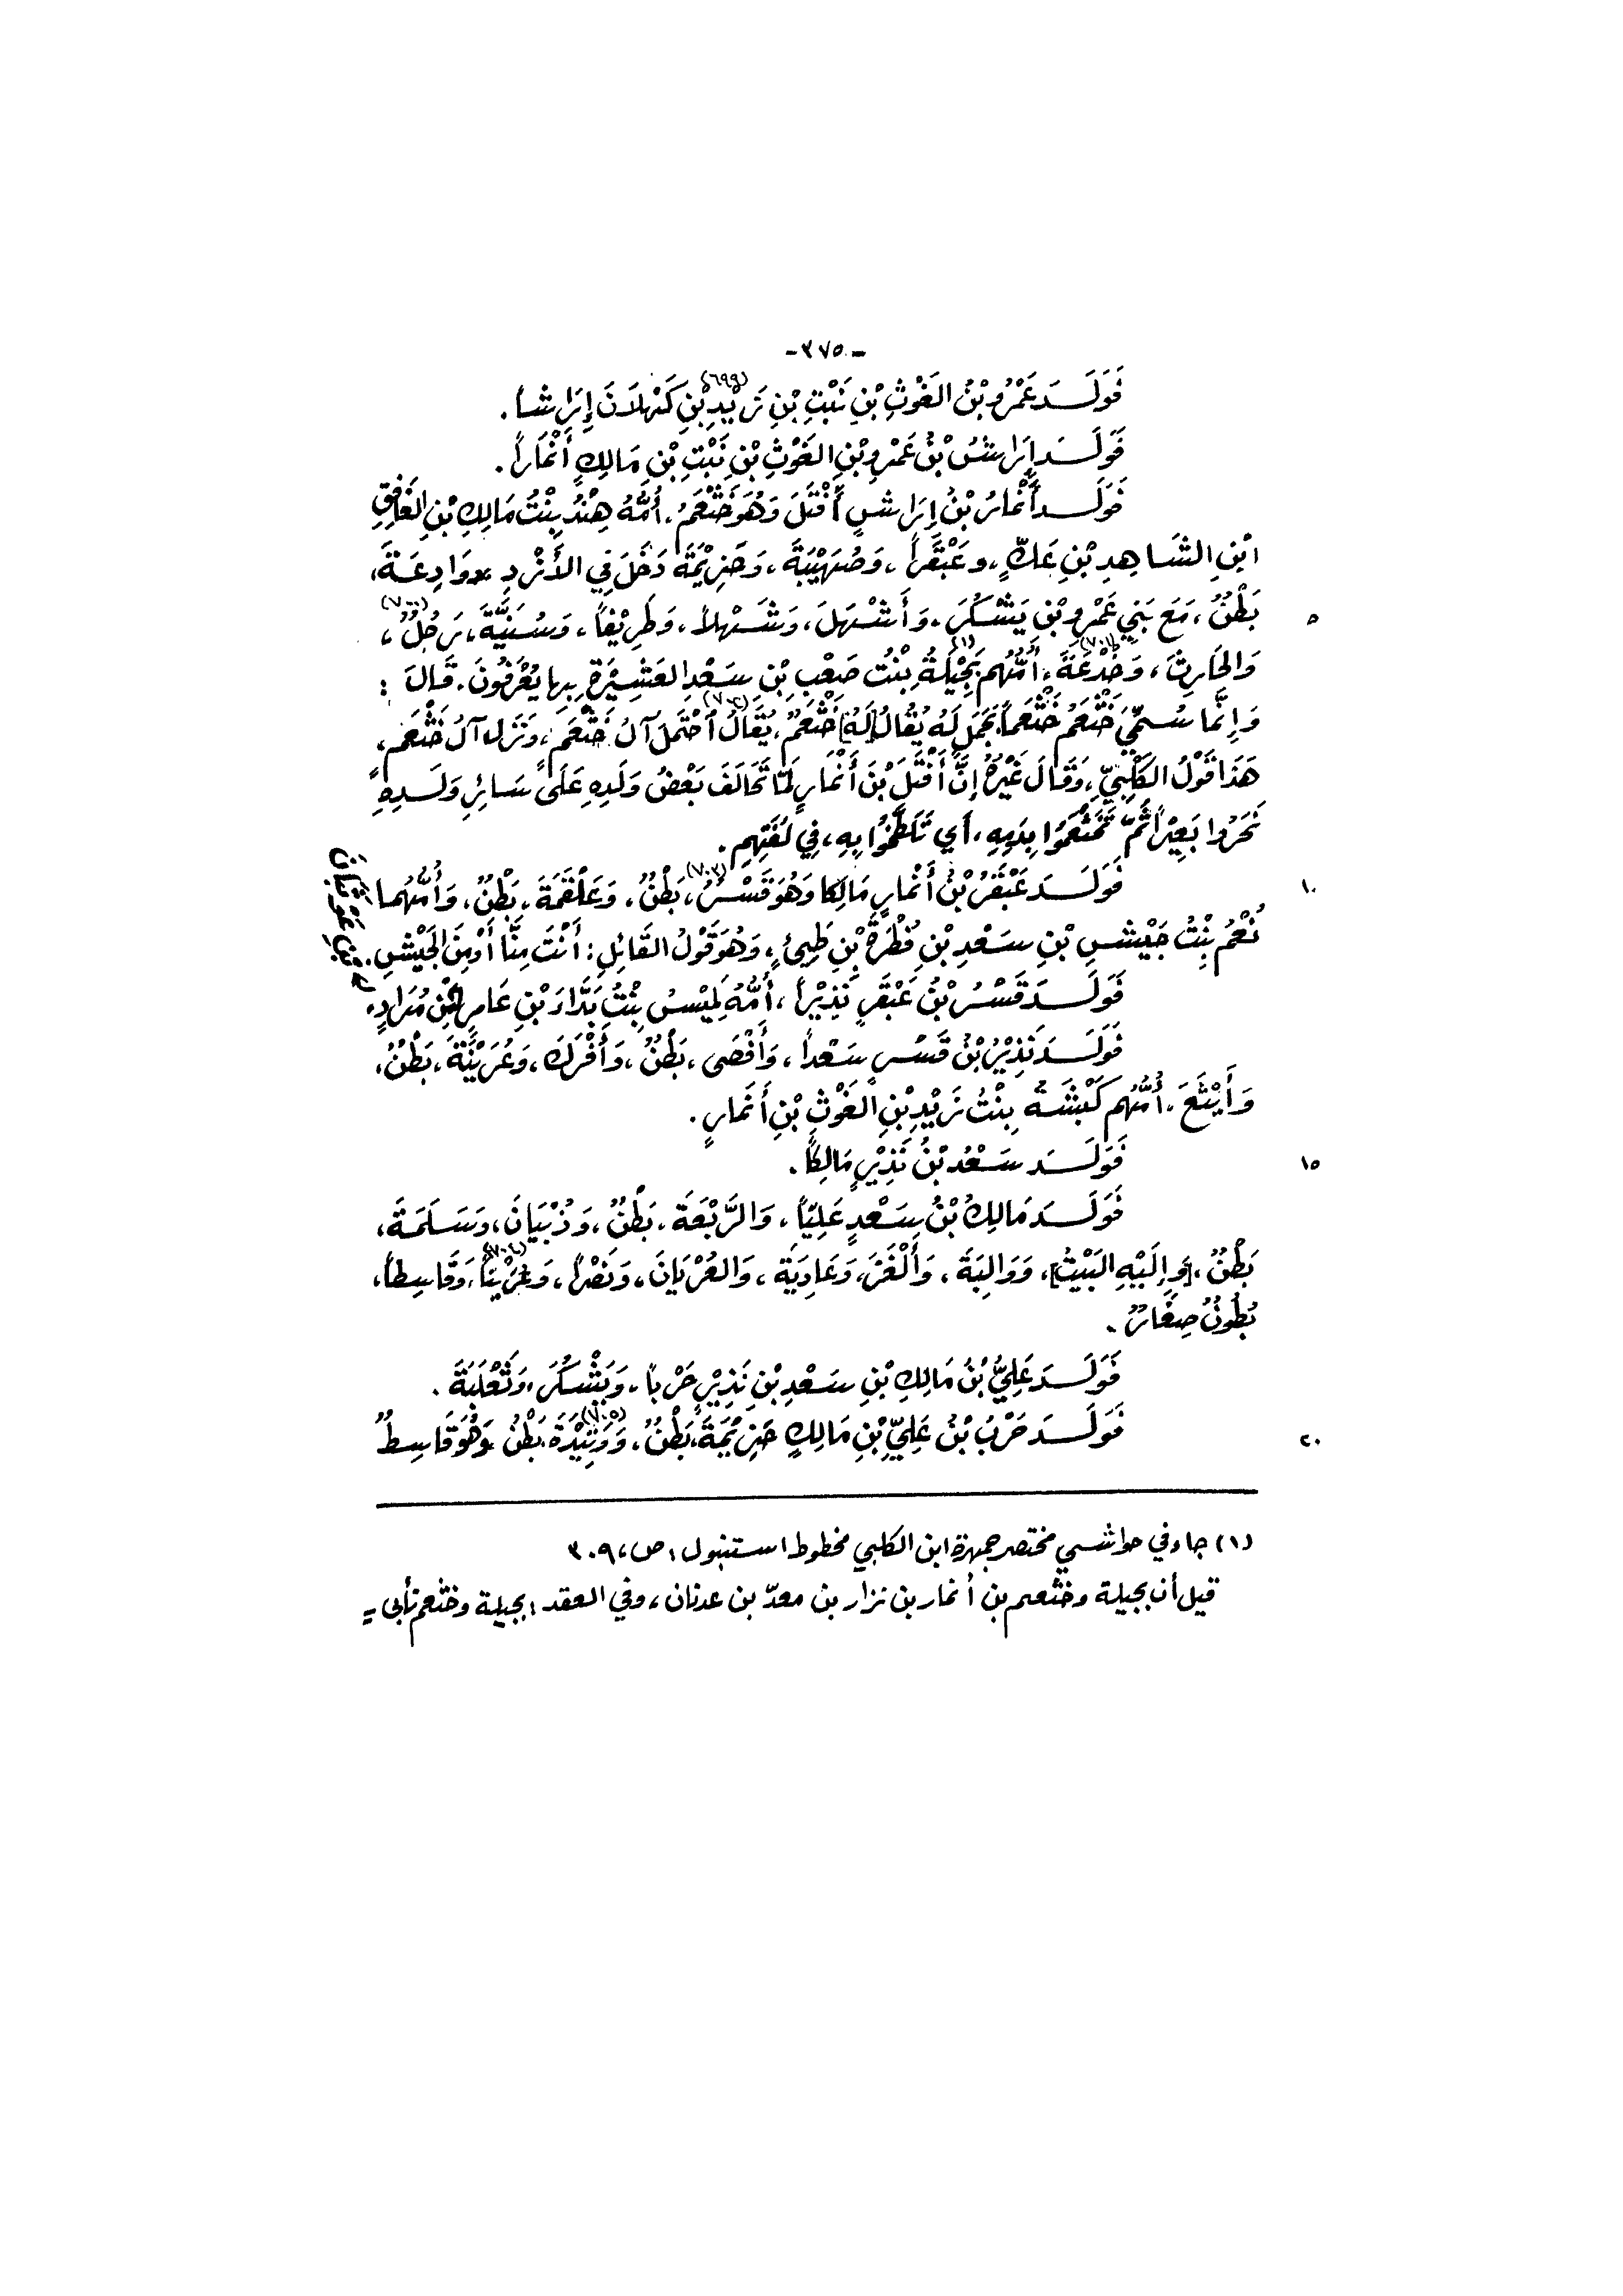 -٣٧٥-
فَوَلَــدَ عَمْرُو بْنُ الغَوْثِ بْنِ نَبْتِ بْنِ زَيْدِ(٦٩٩) بْنِ كَهْلَانَ إِرَاشاً.
فَوَلَــدَ إِرَاشُ بْنُ عَمْرِو بْنِ الغَوْثِ بْنِ نَبْتِ بْنِ مَالِكٍ أَنْمَاراً.
فَوَلَــدَ أَنْمَارُ بْنُ إِرَاشٍ أَفْتَلَ وَهُوَ خَثْعَمُ، أُمُّهُ هِنْدُ بِنْتُ مَالِكِ بْنِ الغَافِقِ
ابْنِ الشَاهِدِ بْنِ عَكٍّ، وعَبْقَراً، وَصُهَيْبَةَ، وَخُزَيْمَةَ دَخَلَ فِي الأَزْدِ، وَوَادِعَةَ،
بَطْنٌ، مَعَ بَنِي عَمْرِو بْنِ يَشْكُرَ، وَأَشْهَلَ، وَشَهْلاً، وَطَرِيْفاً، وَسُنَيَّةَ، رَجُلٌ(٧٠٠)، ٥
وَالحَارِثَ، وَخُدْعَةَ(٧٠١)، أُمُّهُم بَجِيْلَةُ(١) بِنْتُ صَعْبِ بْنِ سَعْدِ العَشِيْرَةِ بِها يُعْرَفُونَ. قَالَ:
وَإِنَّمَا سُمِّيَ خَثْعَمُ خَثْعَماً بِجَمَلٍ لَهُ يُقَالُ [لَهُ] خَثْعَمٌ(٧٠٢)، يُقَالُ أحْتَمَلَ آلُ خَثْعَمٍ، وَنَزَلَ آلُ خَثْعَمٍ،
هَذَا قَوْلُ الكَلْبِيِّ، وَقَالَ غَيْرُهُ إِنَّ أَفْتَلَ بْنَ أَنْمَارٍ لَمَّا تَحَالَفَ بَعْضُ وَلَدِهِ عَلَى سَائِرِ وَلَــدِهِ
نَحَرُوا بَعِيْراً ثُمَّ تَخَثْعَمُوا بِدَمِهِ، أَي تَلَطَّخُوا بِهِ، فِي لُغَتِهِم.
فَوَلَــدَ عَبْقَرُ بْنُ أَنْمَارٍ مَالِكا وَهُوَ قَسْرٌ(٧٠٣)، بَطْنٌ، وَعَلْقَمَةَ، بَطْنٌ، وَأُمُّهُما ١٠
نُعْمُ بِنْتُ جَيْشِ بْنِ سَعْدِ بْنِ فُطْرَةَ بْنِ طَيِئٍ، وَهُوَ قَوْلُ القَائِلِ: أَنْتَ مِنَّا أَوْ مِنَ الجَيْشِ.
فَوَلَــدَ قَسْرُ بْنُ عَبْقَرٍ نَذِيْراً، أُمُّهُ لَمِيْسُ بِنْتُ بَدَّاءَ بْنِ عَامِرِ بْنِ مُرَادٍ،
فَوَلَــدَ نَذِيْرُ بْنُ قَسْرٍ سَعْداً، وَأَفْصَى، بَطْنٌ، وَأَفْرَكَ، وَعُرَيْنَةَ، بَطْنٌ،
وَأَيْثَعَ، أُمُّهُم كَبْشَةُ بِنْتُ زَيْدِ بْنِ الغَوْثِ بْنِ أَنْمَارٍ.
فَوَلَــدَ سَعْدُ بْنُ نَذِيْرٍ مَالِكاً. ١٥
فَوَلَــدَ مَالِكُ بْنُ سَعْدٍ عَلِيّاً، وَالرَّبْعَةَ، بَطْنٌ، وَذُبْيَانَ، وَسَلَمَةَ،
بَطْنٌ، [وَإِلَيْهِ البَيْتُ]، وَوَالِبَةَ، وَأَلْغَزَ، وَعَادِيَةَ، وَالعُرْيَانَ، وَنَصْراً، وَعُرَيْناً(٧٠٤)، وَقَاسِطاً،
بُطُونٌ صِغَارٌ.
فَوَلَــدَ عَلِيُّ بْنُ مَالِكِ بْنِ سَعْدِ بْنِ نَذِيْرٍ حَرْباً، وَيَشْكُرَ، وَثَعْلَبَةَ.
فَوَلَــدَ حَرْبُ بْنُ عَلِيِّ بْنِ مَالِكٍ خُزَيْمَةَ، بَطْنٌ، وَوَتِيْدَةَ(٧٠٥)، بَطْنٌ وَهُوَ قَاسِطٌ ٢٠
(١) جاء في حواشي مختصر جمهرة ابن الكلبي مخطوط استنبول، ص، ٣٠٩
قيل أن بجيلة وخثعم بن أنمار بن نزار بن معدّ بن عدنان، وفي العقد: بجيلة وخثعم تأبى =